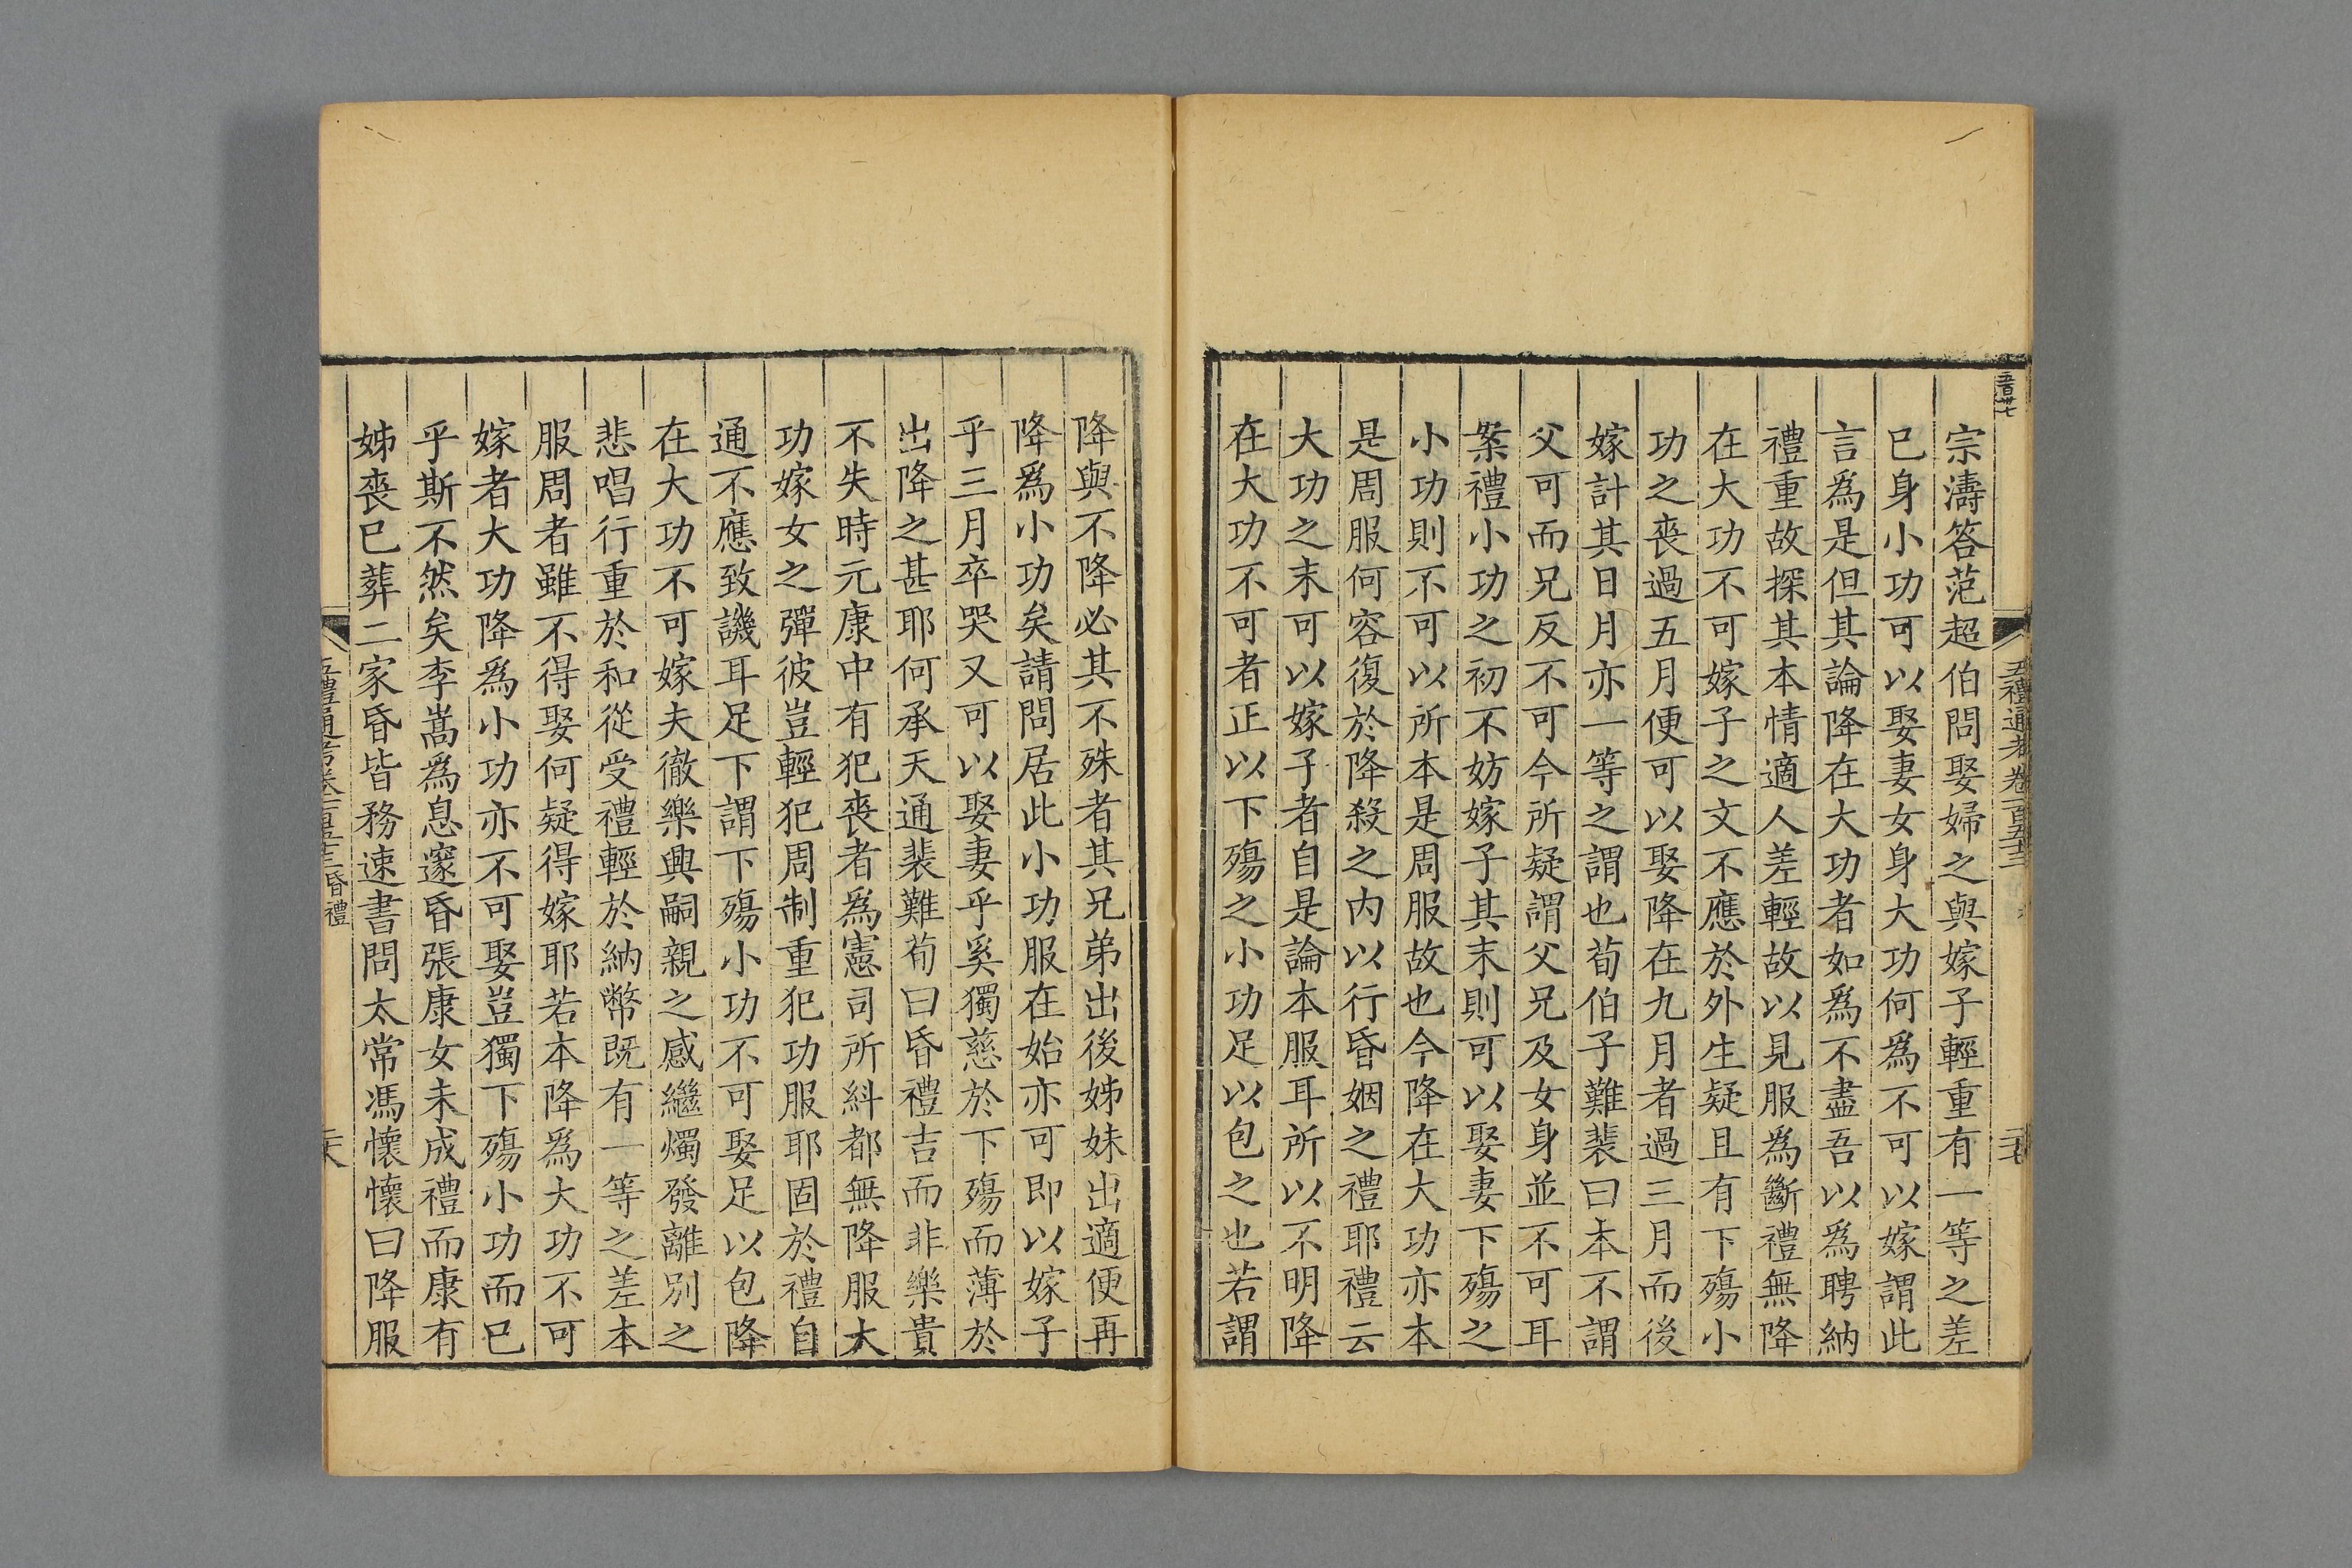 五禮通考卷一百五十三
宗濤答范超伯問娶婦之與嫁子輕重有一等之差
已身小功可以娶妻女身大功何爲不可以嫁謂此
言爲是但其論降在大功者如爲不盡吾以爲聘納
禮重故探其本情適人差輕故以見服爲斷禮無降
在大功不可嫁子之文不應於外生疑且有下殤小
功之喪過五月便可以娶降在九月者過三月而後
嫁計其日月亦一等之謂也荀伯子難裴曰本不謂
父可而兄反不可今所疑謂父兄及女身並不可耳
案禮小功之初不妨嫁子其末則可以娶妻下殤之
小功則不可以所本是周服故也今降在大功亦本
是周服何容復於降殺之内以行昏姻之禮耶禮云
大功之末可以嫁子者自是論本服耳所以不明降
在大功不可者正以下殤之小功足以包之也若謂
降與不降必其不殊者其兄弟出後姊妹出適便再
降爲小功矣請問居此小功服在始亦可即以嫁子
乎三月卒哭又可以娶妻乎奚獨慈於下殤而薄於
出降之甚耶何承天通裴難荀曰昏禮吉而非樂貴
不失時元康中有犯喪者爲憲司所糾都無降服大
功嫁女之彈彼豈輕犯周制重犯功服耶固於禮自
通不應致譏耳足下謂下殤小功不可娶足以包降
在大功不可嫁夫徹樂興嗣親之感繼燭發離別之
悲唱行重於和從受禮輕於納幣既有一等之差本
服周者雖不得娶何疑得嫁耶若本降爲大功不可
嫁者大功降爲小功亦不可娶豈獨下殤小功而已
乎斯不然矣李嵩爲息邃昏張康女未成禮而康有
姊喪已葬二家昏皆務速書問太常馮懷懷曰降服
五禮通考卷一百五十三昏禮